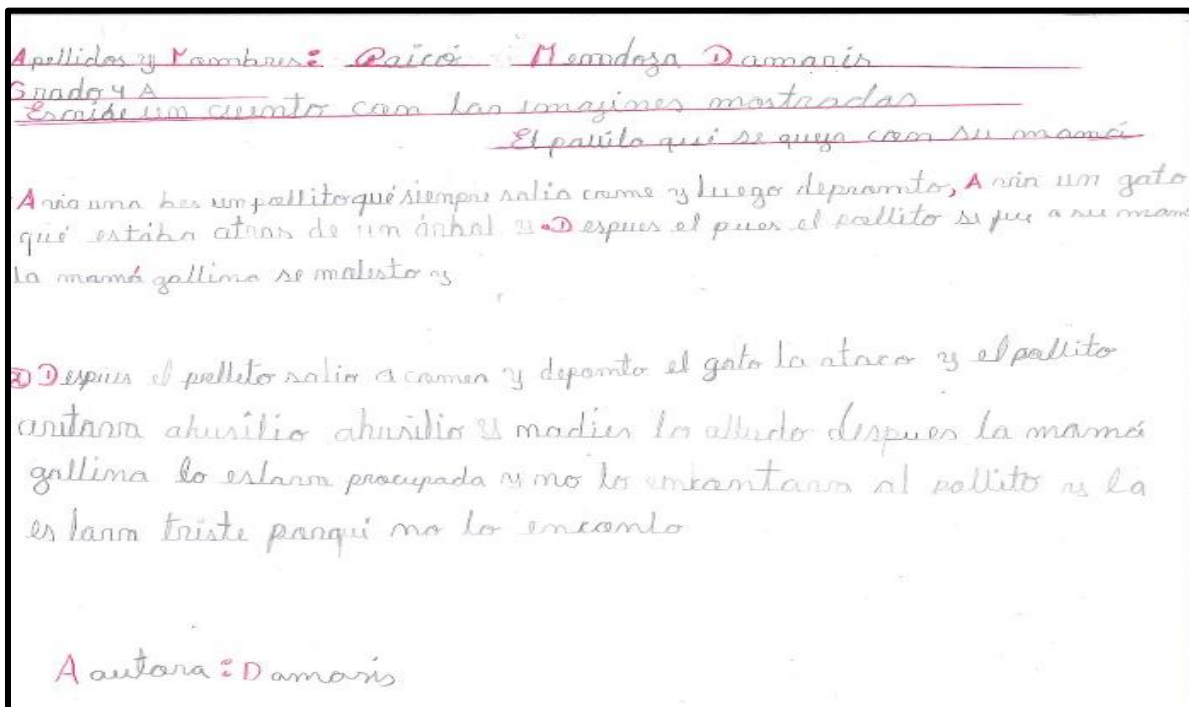 Apellidos y Nombres: Paicó Mendoza Damaris
Grado 4 A
Escribe un cuento con las imagines mostradas
El pollito que se queja con su mamá
A via una bes un pollito qué siempre salia come y luego depromto, A vin un gato
qué estaba atras de un árbol y Despues el pues el pollito se fue a su mama
la mamá gallina se molesto y
Despues el pollito salio a comer y depomto el gato la ataco y el pollito
gritava ahusilio ahusilio y nadien lo alludo despues la mamá
gallina lo estava procupada y no lo enkontava al pollito y la
es tava triste porqui no lo enconto
A autora: Damaris